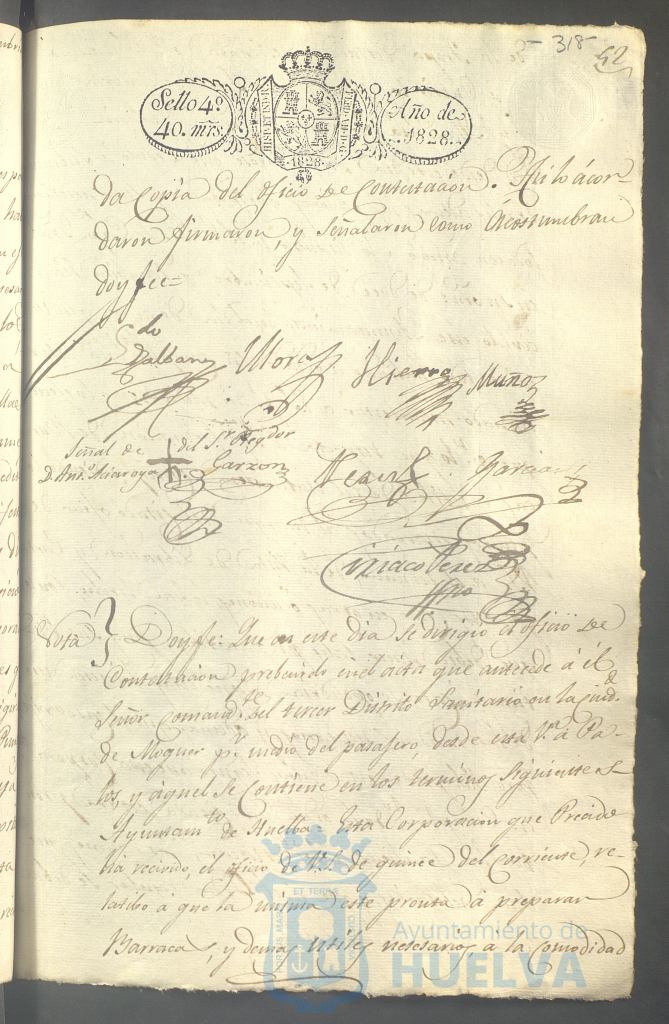 318
52
Sello 4º
40. mrs.
Año de
1828.
1828
da Copia del oficio de Contestacion. Asi lo acor-
daron firmaron, y señalaron como Acostumbran
doy fee=
Mora
Hierro
Muñoz
Señal de
del Sr. Regdor
D. Anto.
Garzon
Garcia
Ciriaco Perez
Nota } Doy fe: Que en este dia se dirigio el oficio de
Contestacion prebenido en el acta que antecede á el
Señor Comandte. del tercer Distrito Sanitario en la Ciudd.
de Moguer pr. medio del pasagero, desde esta Va. á Pa-
los, y aquel se contiene en los terminos Siguientes=
Ayuntamto. de Huelba= Esta Corporacion que Precido
ha recivido, el oficio de V.S. de quince del corriente, re-
latibo á que la misma este pronta á preparar
Barracas, y demas utiles nesesarios, a la Comodidad
Ayuntamiento de
HUELVA